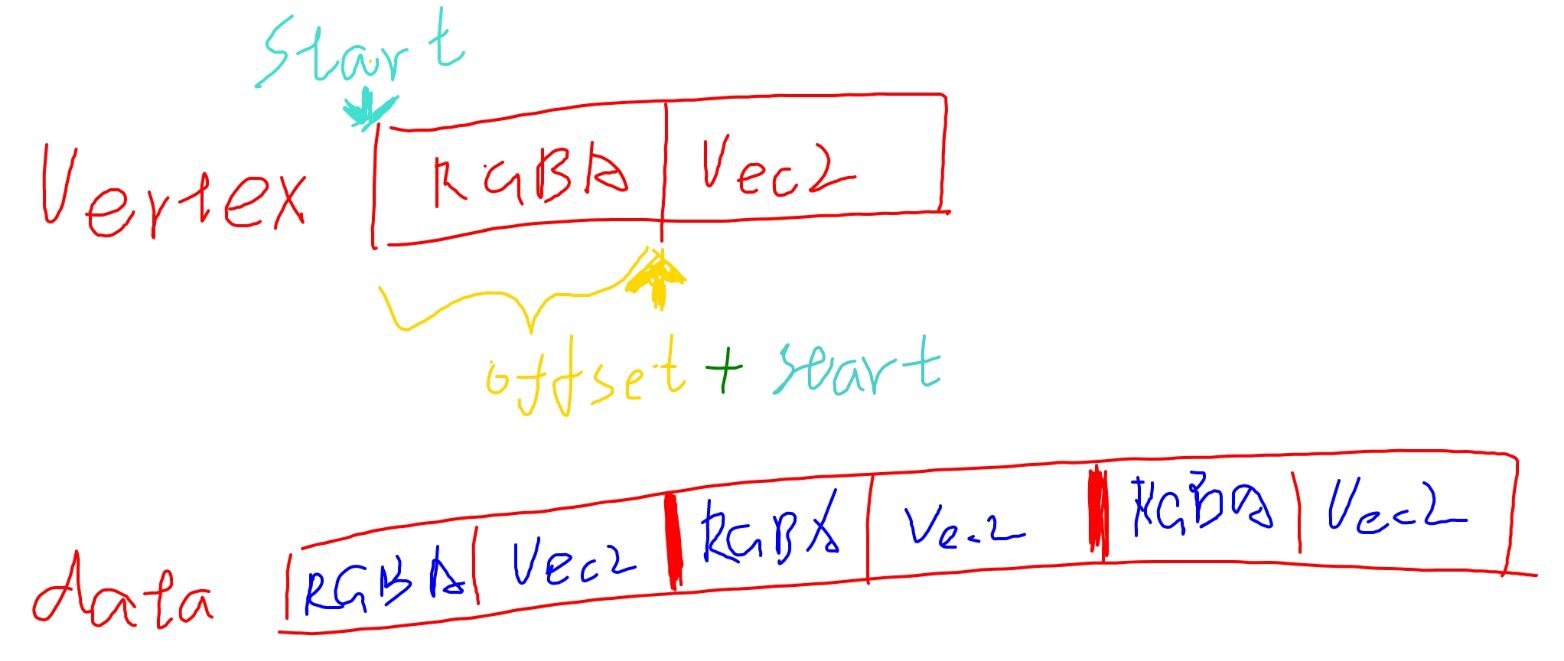 Start
Vertex RGBA Vec2
offset + start
data RGBA Vec2 RGBA Vec2 RGBA Vec2